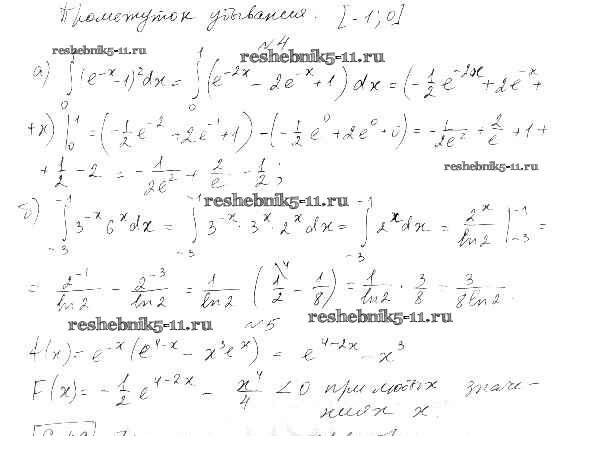 Промежуток убывания. [-1; 0]
№4
reshebnik5-11.ru
reshebnik5-11.ru
а) ∫₀¹ (e⁻ˣ-1)²dx = ∫₀¹ (e⁻²ˣ - 2e⁻ˣ + 1) dx = (-1/2 e⁻²ˣ + 2e⁻ˣ +
+ x) |₀¹ = (-1/2 e⁻² + 2e⁻¹ + 1) - (-1/2 e⁰ + 2e⁰ + 0) = -1/(2e²) + 2/e + 1 +
+ 1/2 - 2 = -1/(2e²) + 2/e - 1/2;
reshebnik5-11.ru
reshebnik5-11.ru
б) ∫₋₃⁻¹ 3⁻ˣ 6ˣ dx = ∫₋₃⁻¹ 3⁻ˣ · 3ˣ · 2ˣ dx = ∫₋₃⁻¹ 2ˣ dx = 2ˣ/ln2 |₋₃⁻¹ =
= 2⁻¹/ln2 - 2⁻³/ln2 = 1/ln2 (1/2 - 1/8) = 1/ln2 · 3/8 = 3/(8ln2).
reshebnik5-11.ru
reshebnik5-11.ru
№5
f(x) = e⁻ˣ (e⁴⁻ˣ - x³eˣ) = e⁴⁻²ˣ - x³
F(x) = -1/2 e⁴⁻²ˣ - x⁴/4 < 0 при любых значе-
ниях x.